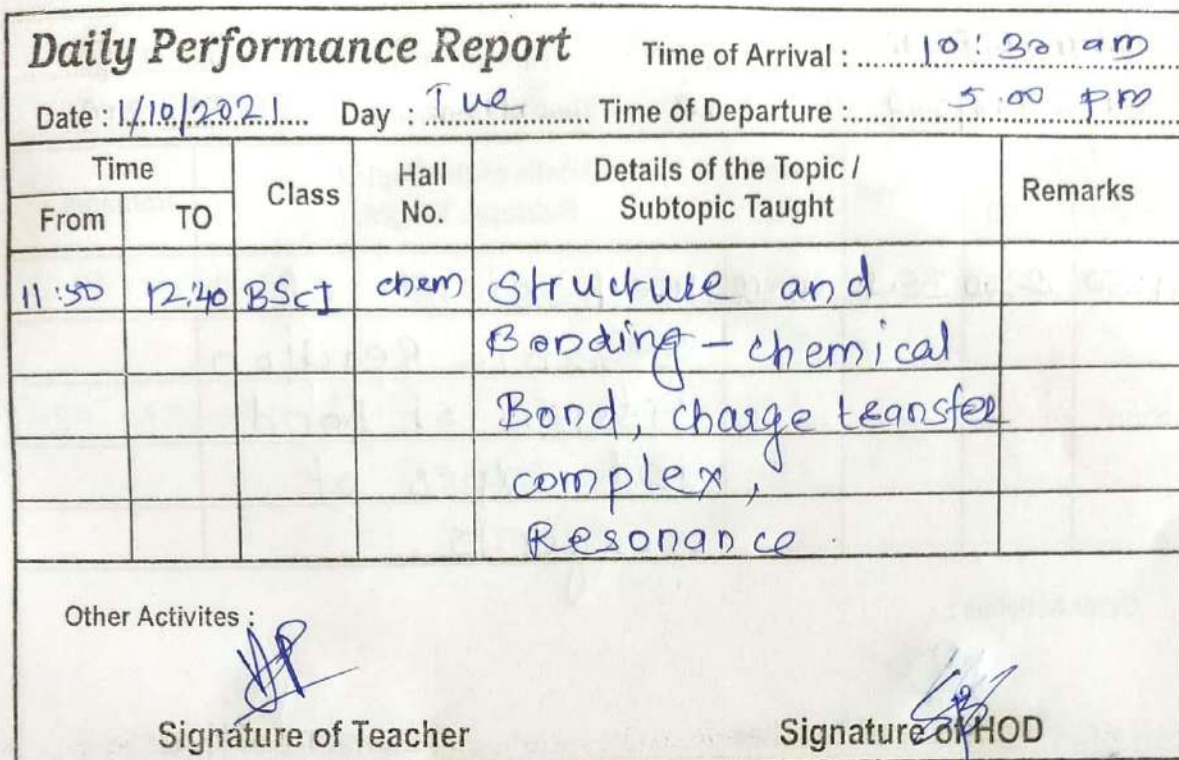 Daily Performance Report Time of Arrival : 10:30 am
Date : 1/10/2021 Day : Tue Time of Departure : 5.00 pm
Time Class Hall No. Details of the Topic / Subtopic Taught Remarks
From TO
11:50 12:40 BSc I chem Structure and
Bonding - chemical
Bond, charge transfer
complex,
Resonance.
Other Activites :
Signature of Teacher Signature of HOD